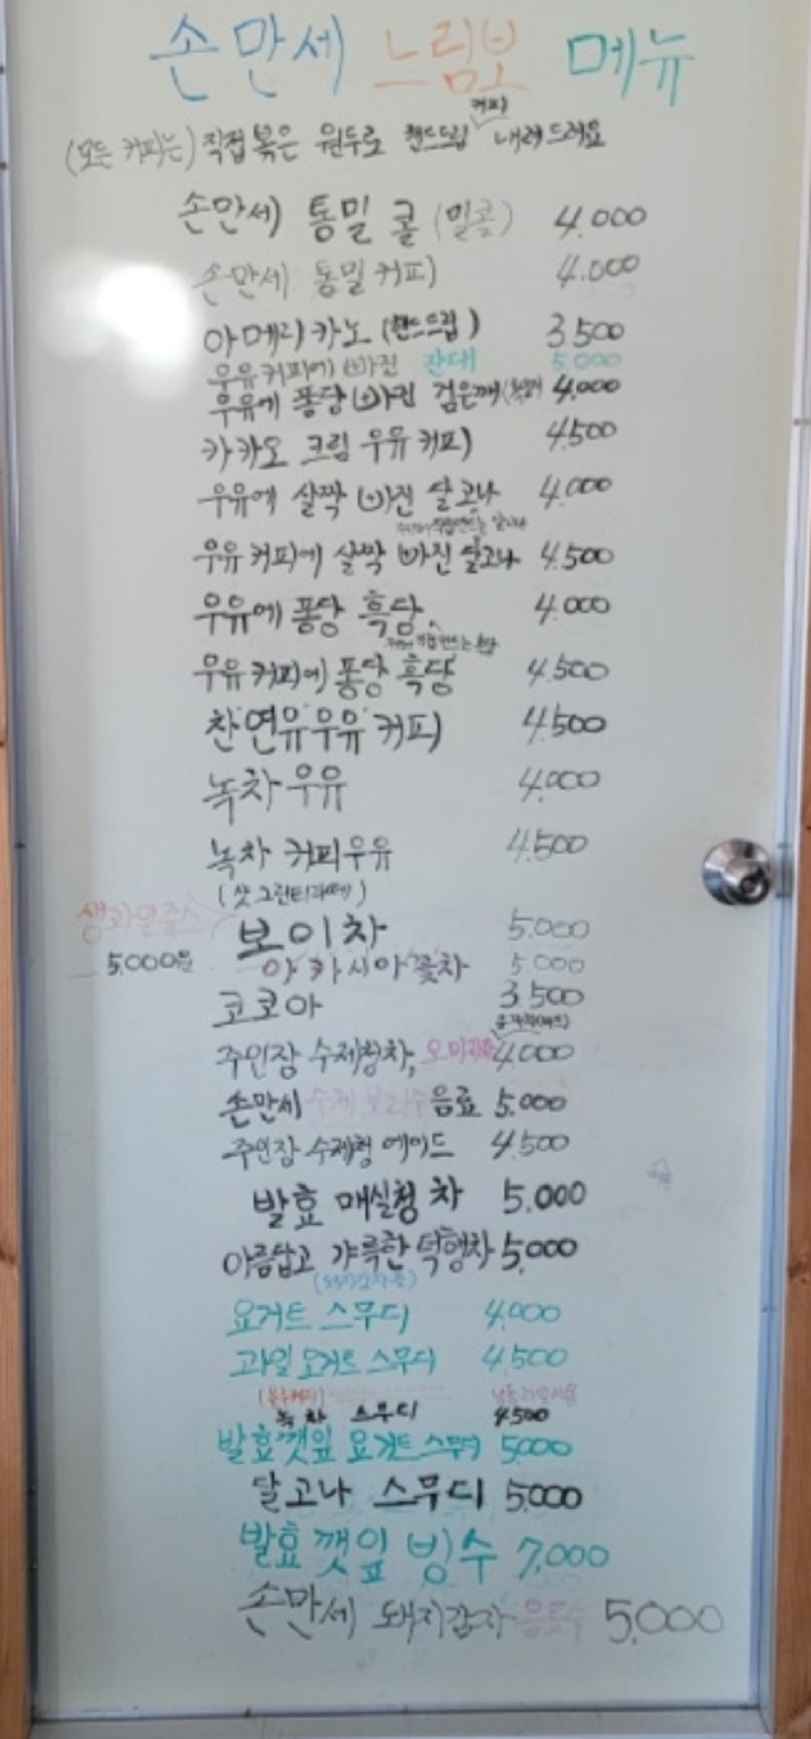 손만세 느림보 메뉴
커피
(모든 커피는) 직접 볶은 원두로 핸드드립 내려 드려요
손만세 통밀 콜 (밀콜) 4.000
손만세 통밀 커피 4.000
아메리카노 (핸드드립) 3500
우유커피에 빠진 잔대 5.000
우유에 퐁당 빠진 검은깨 4.000
카카오 크림 우유 커피 4500
우유에 살짝 빠진 달고나 4.000
우유 커피에 살짝 빠진 달고나 4.500
우유에 퐁당 흑당 4.000
우유 커피에 퐁당 흑당 4.500
찬 연유 우유 커피 4.500
녹차 우유 4.000
녹차 커피우유 4.500
(샷 그린티라떼)
생과일쥬스 5.000원
보이차 5.000
아카시아 꽃차 5.000
코코아 3.500
주인장 수제청차, 오미자차 4.000
손만세 수제 보리수 음료 5.000
주인장 수제청 에이드 4.500
발효 매실청 차 5.000
아름답고 갸륵한 덕행차 5.000
요거트 스무디 4.000
과일 요거트 스무디 4.500
녹차 스무디 4.500
발효깻잎 요거트 스무디 5.000
달고나 스무디 5.000
발효 깻잎 빙수 7.000
손만세 돼지감자 음료수 5.000